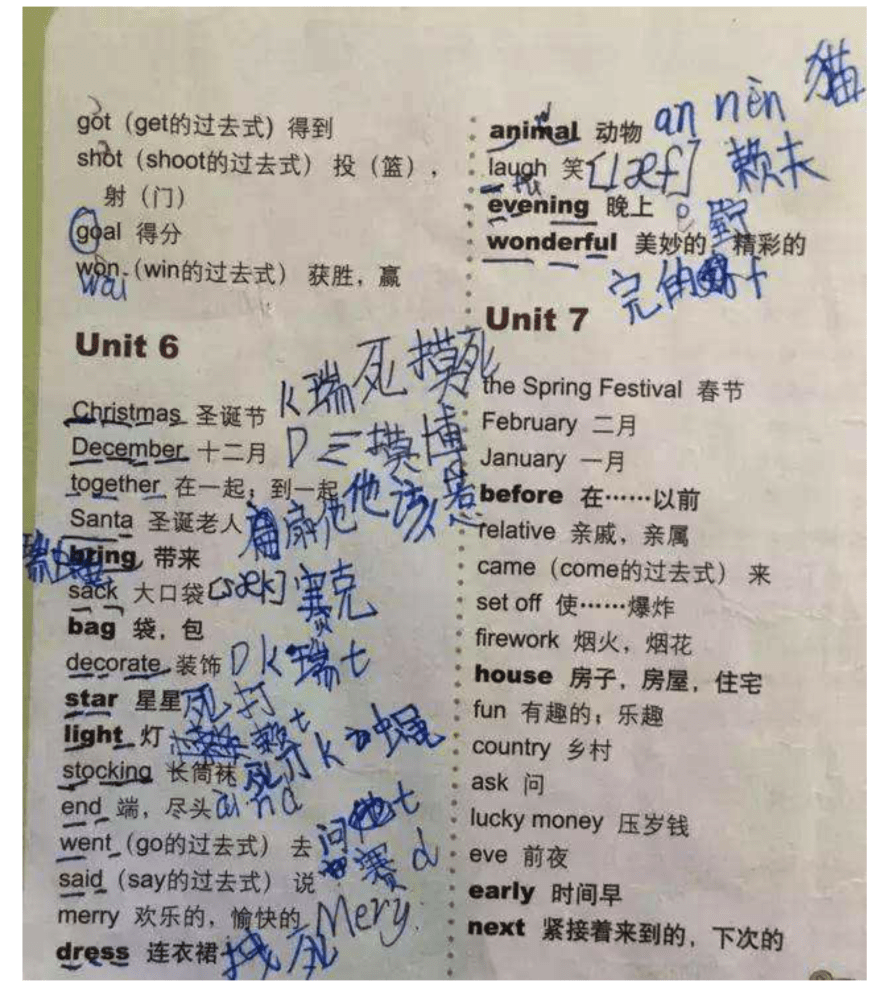 got (get的过去式) 得到
shot (shoot的过去式) 投（篮），
射（门）
goal 得分
won (win的过去式) 获胜，赢
wai
Unit 6
Christmas 圣诞节 K瑞死摸死
December 十二月 D三摸博
together 在一起；到一起 他该惹
Santa 圣诞老人 扇他
bring 带来
sack 大口袋 [sæk] 赛克
bag 袋，包
decorate 装饰 D K 瑞 t
star 星星 死打
light 灯 赖 t
stocking 长筒袜 死打K 蝇
end 端，尽头 ai nd
went (go的过去式) 去 问 t
said (say的过去式) 说 赛 d
merry 欢乐的，愉快的 Mery
dress 连衣裙 死
animal 动物 an nen 猫
laugh 笑 [læf] 赖夫
fu
evening 晚上 野
wonderful 美妙的，精彩的
完的 t
Unit 7
the Spring Festival 春节
February 二月
January 一月
before 在……以前
relative 亲戚，亲属
came (come的过去式) 来
set off 使……爆炸
firework 烟火，烟花
house 房子，房屋，住宅
fun 有趣的；乐趣
country 乡村
ask 问
lucky money 压岁钱
eve 前夜
early 时间早
next 紧接着来到的，下次的